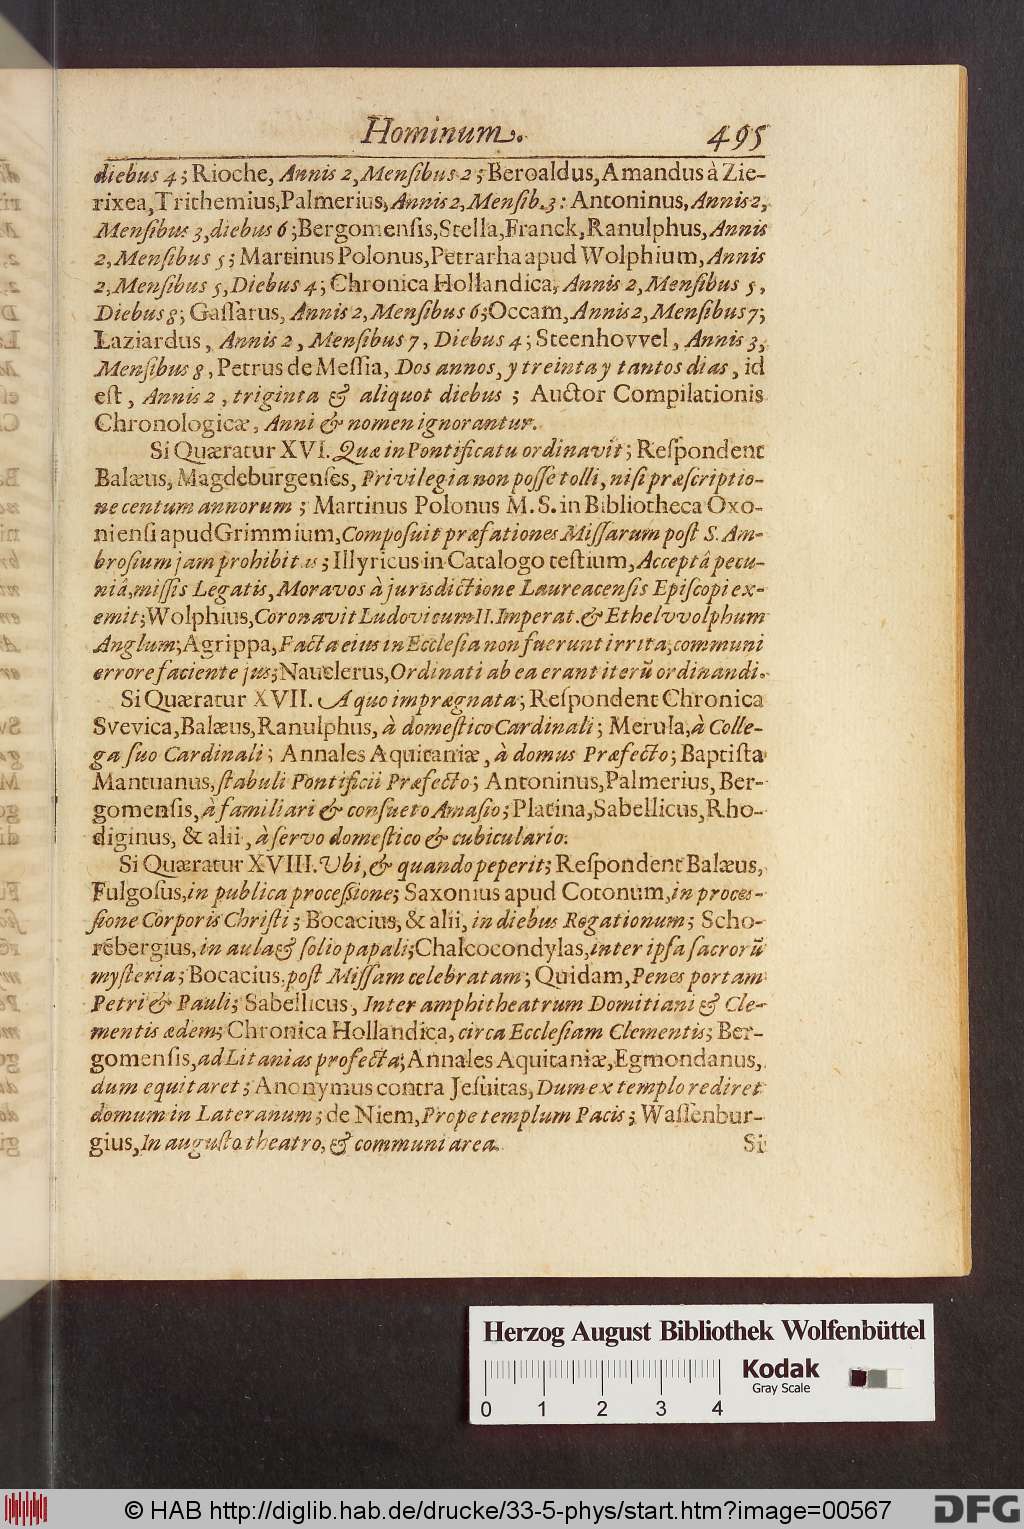 Hominum. 495
diebus 4; Rioche, Annis 2, Menſibus 2; Beroaldus, Amandus à Zie-
rixea, Trithemius, Palmerius, Annis 2, Menſib. 3: Antoninus, Annis 2,
Menſibus 3, diebus 6; Bergomenſis, Stella, Franck, Ranulphus, Annis
2, Menſibus 5; Martinus Polonus, Petrarha apud Wolphium, Annis
2, Menſibus 5, Diebus 4; Chronica Hollandica, Annis 2, Menſibus 5,
Diebus 8; Gaſſarus, Annis 2, Menſibus 6; Occam, Annis 2, Menſibus 7;
Laziardus, Annis 2, Menſibus 7, Diebus 4; Steenhovvel, Annis 3,
Menſibus 8, Petrus de Meſſia, Dos annos, y treinta y tantos dias, id
eſt, Annis 2, triginta & aliquot diebus; Auctor Compilationis
Chronologicæ, Anni & nomen ignorantur.
Si Quæratur XVI. Quæ in Pontificatu ordinavit; Reſpondent
Balæus, Magdeburgenſes, Privilegia non poſſe tolli, niſi præſcriptio-
ne centum annorum; Martinus Polonus M. S. in Bibliotheca Oxo-
nienſi apud Grimmium, Compoſuit præfationes Miſſarum poſt S. Am-
broſium jam prohibitas; Illyricus in Catalogo teſtium, Acceptâ pecu-
niâ, miſſis Legatis, Moravos à jurisdictione Laureacenſis Epiſcopi ex-
emit; Wolphius, Coronavit Ludovicum II. Imperat. & Ethelvvolphum
Anglum; Agrippa, Facta eius in Eccleſia non fuerunt irrita; communi
errore faciente jus; Nauclerus, Ordinati ab ea erant iterũ ordinandi.
Si Quæratur XVII. A quo imprægnata; Reſpondent Chronica
Svevica, Balæus, Ranulphus, à domeſtico Cardinali; Merula, à Colle-
ga ſuo Cardinali; Annales Aquitaniæ, à domus Præfecto; Baptiſta
Mantuanus, ſtabuli Pontificii Præfecto; Antoninus, Palmerius, Ber-
gomenſis, à familiari & conſueto Amaſio; Platina, Sabellicus, Rho-
diginus, & alii, à ſervo domeſtico & cubiculario.
Si Quæratur XVIII. Ubi, & quando peperit; Reſpondent Balæus,
Fulgoſus, in publica proceſſione; Saxonius apud Cotonum, in proceſ-
ſione Corporis Chriſti; Bocacius, & alii, in diebus Rogationum; Scho-
rẽbergius, in aula & ſolio papali; Chalcocondylas, inter ipſa ſacrorũ
myſteria; Bocacius, poſt Miſſam celebratam; Quidam, Penes portam
Petri & Pauli; Sabellicus, Inter amphitheatrum Domitiani & Cle-
mentis ædem; Chronica Hollandica, circa Eccleſiam Clementis; Ber-
gomenſis, ad Litanias profecta; Annales Aquitaniæ, Egmondanus,
dum equitaret; Anonymus contra Jeſuitas, Dum ex templo rediret
domum in Lateranum; de Niem, Prope templum Pacis; Waſſenbur-
gius, In auguſto theatro, & communi area.
Si
Herzog August Bibliothek Wolfenbüttel
Kodak
Gray Scale
0 1 2 3 4
© HAB http://diglib.hab.de/drucke/33-5-phys/start.htm?image=00567
DFG